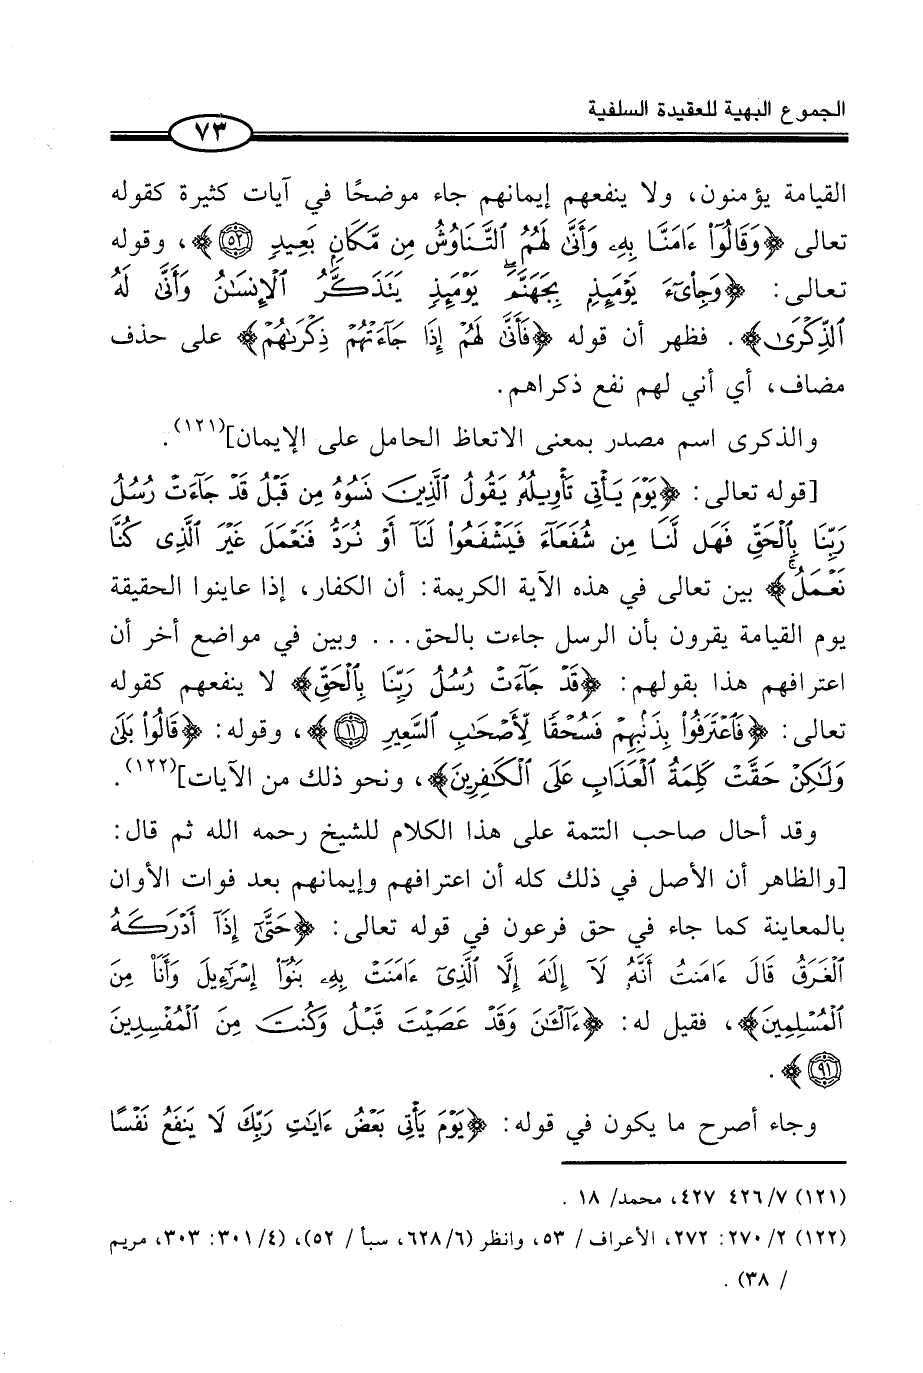 الجموع البهية للعقيدة السلفية
٧٣
القيامة يؤمنون، ولا ينفعهم إيمانهم جاء موضحًا في آيات كثيرة كقوله
تعالى ﴿وَقَالُوٓا۟ ءَامَنَّا بِهِۦ وَأَنَّىٰ لَهُمُ ٱلتَّنَاوُشُ مِن مَّكَانٍۭ بَعِيدٍ ٥٢﴾، وقوله
تعالى: ﴿وَجِا۟ىٓءَ يَوْمَئِذٍۭ بِجَهَنَّمَ ۚ يَوْمَئِذٍ يَتَذَكَّرُ ٱلْإِنسَٰنُ وَأَنَّىٰ لَهُ
ٱلذِّكْرَىٰ﴾. فظهر أن قوله ﴿فَأَنَّىٰ لَهُمْ إِذَا جَآءَتْهُمْ ذِكْرَىٰهُمْ﴾ على حذف
مضاف، أي أني لهم نفع ذكراهم.
والذكرى اسم مصدر بمعنى الاتعاظ الحامل على الإيمان](١٢١).
[قوله تعالى: ﴿يَوْمَ يَأْتِى تَأْوِيلُهُۥ يَقُولُ ٱلَّذِينَ نَسُوهُ مِن قَبْلُ قَدْ جَآءَتْ رُسُلُ
رَبِّنَا بِٱلْحَقِّ فَهَل لَّنَا مِن شُفَعَآءَ فَيَشْفَعُوا۟ لَنَآ أَوْ نُرَدُّ فَنَعْمَلَ غَيْرَ ٱلَّذِى كُنَّا
نَعْمَلُ ۚ﴾ بين تعالى في هذه الآية الكريمة: أن الكفار، إذا عاينوا الحقيقة
يوم القيامة يقرون بأن الرسل جاءت بالحق... وبين في مواضع أخر أن
اعترافهم هذا بقولهم: ﴿قَدْ جَآءَتْ رُسُلُ رَبِّنَا بِٱلْحَقِّ﴾ لا ينفعهم كقوله
تعالى: ﴿فَٱعْتَرَفُوا۟ بِذَنۢبِهِمْ فَسُحْقًا لِّأَصْحَٰبِ ٱلسَّعِيرِ ١١﴾، وقوله: ﴿قَالُوا۟ بَلَىٰ
وَلَٰكِنْ حَقَّتْ كَلِمَةُ ٱلْعَذَابِ عَلَى ٱلْكَٰفِرِينَ﴾، ونحو ذلك من الآيات](١٢٢).
وقد أحال صاحب التتمة على هذا الكلام للشيخ رحمه الله ثم قال:
[والظاهر أن الأصل في ذلك كله أن اعترافهم وإيمانهم بعد فوات الأوان
بالمعاينة كما جاء في حق فرعون في قوله تعالى: ﴿حَتَّىٰٓ إِذَآ أَدْرَكَهُ
ٱلْغَرَقُ قَالَ ءَامَنتُ أَنَّهُۥ لَآ إِلَٰهَ إِلَّا ٱلَّذِىٓ ءَامَنَتْ بِهِۦ بَنُوٓا۟ إِسْرَٰٓءِيلَ وَأَنَا۠ مِنَ
ٱلْمُسْلِمِينَ﴾، فقيل له: ﴿ءَآلْـَٰٔنَ وَقَدْ عَصَيْتَ قَبْلُ وَكُنتَ مِنَ ٱلْمُفْسِدِينَ
٩١﴾.
وجاء أصرح ما يكون في قوله: ﴿يَوْمَ يَأْتِى بَعْضُ ءَايَٰتِ رَبِّكَ لَا يَنفَعُ نَفْسًا
(١٢١) ٧/ ٤٢٦ ٤٢٧، محمد/ ١٨ .
(١٢٢) ٢/ ٢٧٠: ٢٧٢، الأعراف/ ٥٣، وانظر (٦/ ٦٢٨، سبأ / ٥٢)، (٤/ ٣٠١: ٣٠٣، مريم
/ ٣٨) .